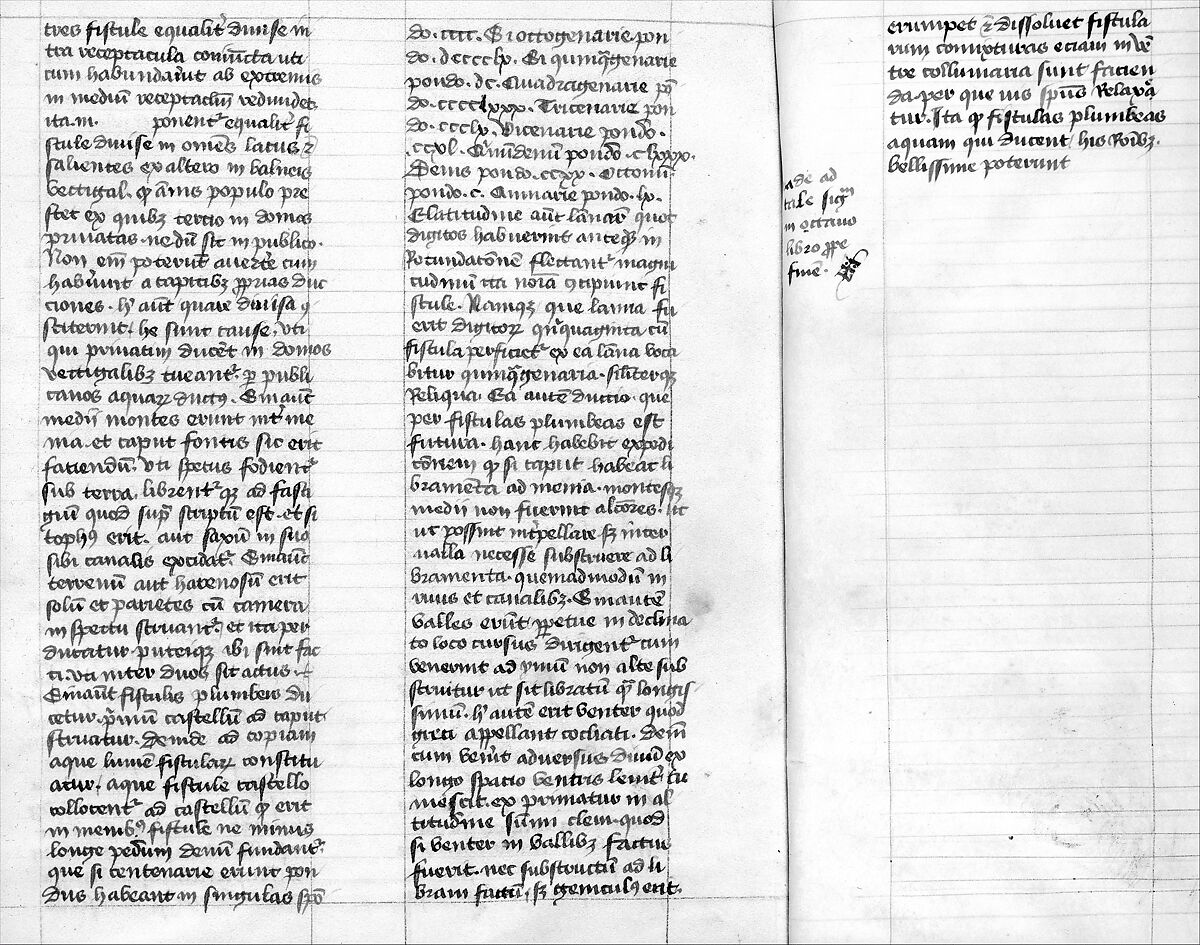 tres fistule equalit̓ diuise in
tra receptacula coniu̅cta uti
cum habundau̓it ab extremis
in mediu̅ receptaclm̅ redundet.
ita.in. ponent᷑ equalit̓ fi
stule diuise in om̅es lacus ⁊
salientes ex altero in balneis
vectigal. q̨ a̅nis populo pre
stet ex quibꝫ tercio in domos
priuatas. ne du̅ sit in publico.
Non em̅ poterun̅t auert̓e cum
habu̓int a capitibꝫ ꝓprias duc
ciones. h̓ aut̅ quare diuisa ꝯ
stiterint, he sunt cause, vti
qui priuatim ducet̅ in domos
vectigalibꝫ tueant᷑. ꝑ publi
canos aquaꝝ ductꝰ. Sin aut̅
medii montes erunt int̓ me
nia. et caput fontis sic erit
faciendu̅. vti spetus fodient᷑
sub terra, librent᷑qꝫ ad fasti
giu̅ quod sup̅ scriptu̅ est. et si
tophꝰ erit. aut saxu̅ in suo
sibi canalis excidat᷑. Sin aut̅
terrenu̅ aut harenosu̅ erit
solu̅ et parietes cu̅ camera
in spectu struant᷑. et ita per
ducatur. puteiqꝫ ibi sint fac
ti. vti inter duos sit actus.
Sin au̅t fistulis plumbeis du
cetur. p̅mu̅ castellu̅ ad caput
struatur. deinde ad copiam
aque lumē fistulaꝝ constitu
atur. aque fistule castello
collocent᷑ ad castellu̅ q̨ erit
in menibꝰ fistule ne minus
longe pedum denu̅ fundant᷑.
que si centenarie erunt pon
dus habeant in singulas spo̅
do. cccc. Si ottogenarie pon
do. dcccclx. Si qui̅qᷓgenarie
pondo. dc. Quadragenarie po̅
do. cccclxxx. Tricenarie pon
do. ccclx. Vicenarie pondo.
ccxl. Qui̅ndenu̅ pondo. clxxxx.
Denis pondo. ccxx. Octonu̅
pondo. c. Quinarie pondo. lx.
E latitudine aut̅ lanaꝝ quot
digitos habuerint anteqꝫ in
Rotundatōnē flectant᷑ magni
tudinu̅ ita nom̅a ꝯcipiunt fi
stule. Namqꝫ que lamia fu
erit digitoꝝ qui̅quaginta cu̅
fistula perficiet᷑ ex ea lam̅a voca
bitur qui̅qᷓgenaria. silit̓erqꝫ
Reliqua. Ea autē ductio. que
per fistulas plumbeas est
futura. hanc habebit expedi
cōnem q̨ si caput habeat li
bramēta ad menia. montesqꝫ
medii non fuerint alcōres. ut
ut possint int̓pellare sꝫ inter
ualla necesse substruere ad li
bramenta. quemadmodu̅ in
riuis et canalibꝫ. Sin autē
valles eru̅t ꝓpetue in declina
to loco cursus dirigent᷑ cum
venerint ad ymu̅ non alte sub
struitur ut sit libratu̅ qᷓ longis
simu̅. h̓ autē erit venter quod
greci appellant cochiati. dein̅
cum ven̓it aduersus diuu̅ ex
longo spatio ventris lenit̓. tu
mescit. ex primatur in al
titudine su̅mi cleui. quod
si venter in vallibꝫ factus
fuerit. nec substructu̅ ad li
bram factu̅, sꝫ geniculꝰ erit.
ade ad
tale sigᷠ
in octauo
libro ꝓpe
finē.
erumpet ⁊ dissoluet fistula
rum comixturas eciam in ve̅
tre collumaria sunt facien
da. per que uis spu̅s Relaxa
tur. Ita q̨ fistulas plumbeas
aquam qui ducent, his Ro̅ibꝫ.
bellissime poterunt